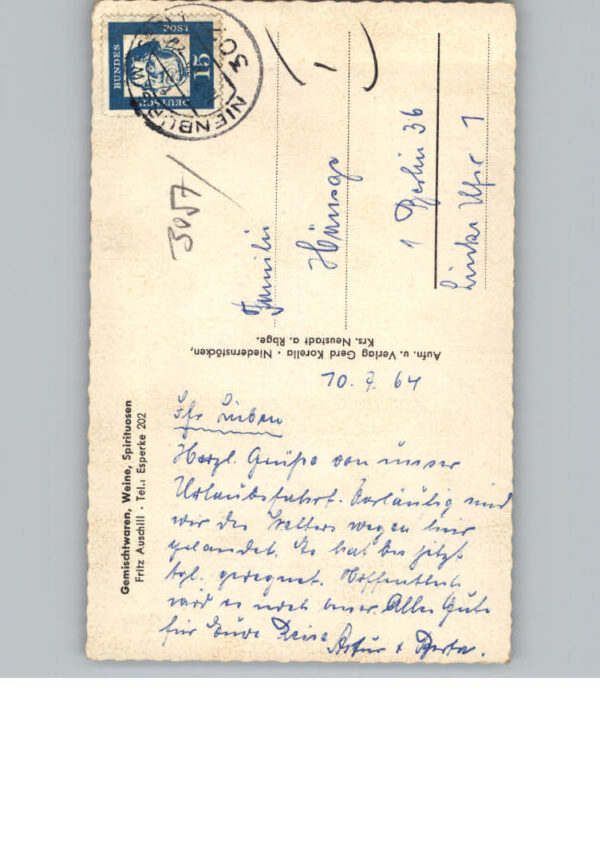 Gemischtwaren, Weine, Spirituosen
Fritz Auschill · Tel.: Esperke 202
10. 7. 64
Ihr Lieben
Herzl. Grüße von unser
Urlaubsfahrt. Vorläufig sind
wir des Wetters wegen hier
gelandet. Es hat bis jetzt
tgl. geregnet. Hoffentlich
wird es noch besser. Alles Gute
für Eure Reise Artur + Berta.
Aufn. u. Verlag Gerd Korella · Niedernstöcken,
Krs. Neustadt a. Rbge.
DEUTSCHE
BUNDES
POST
15
NIENBURG
3057
Familie
1 Berlin 36
Linke Ufer 1